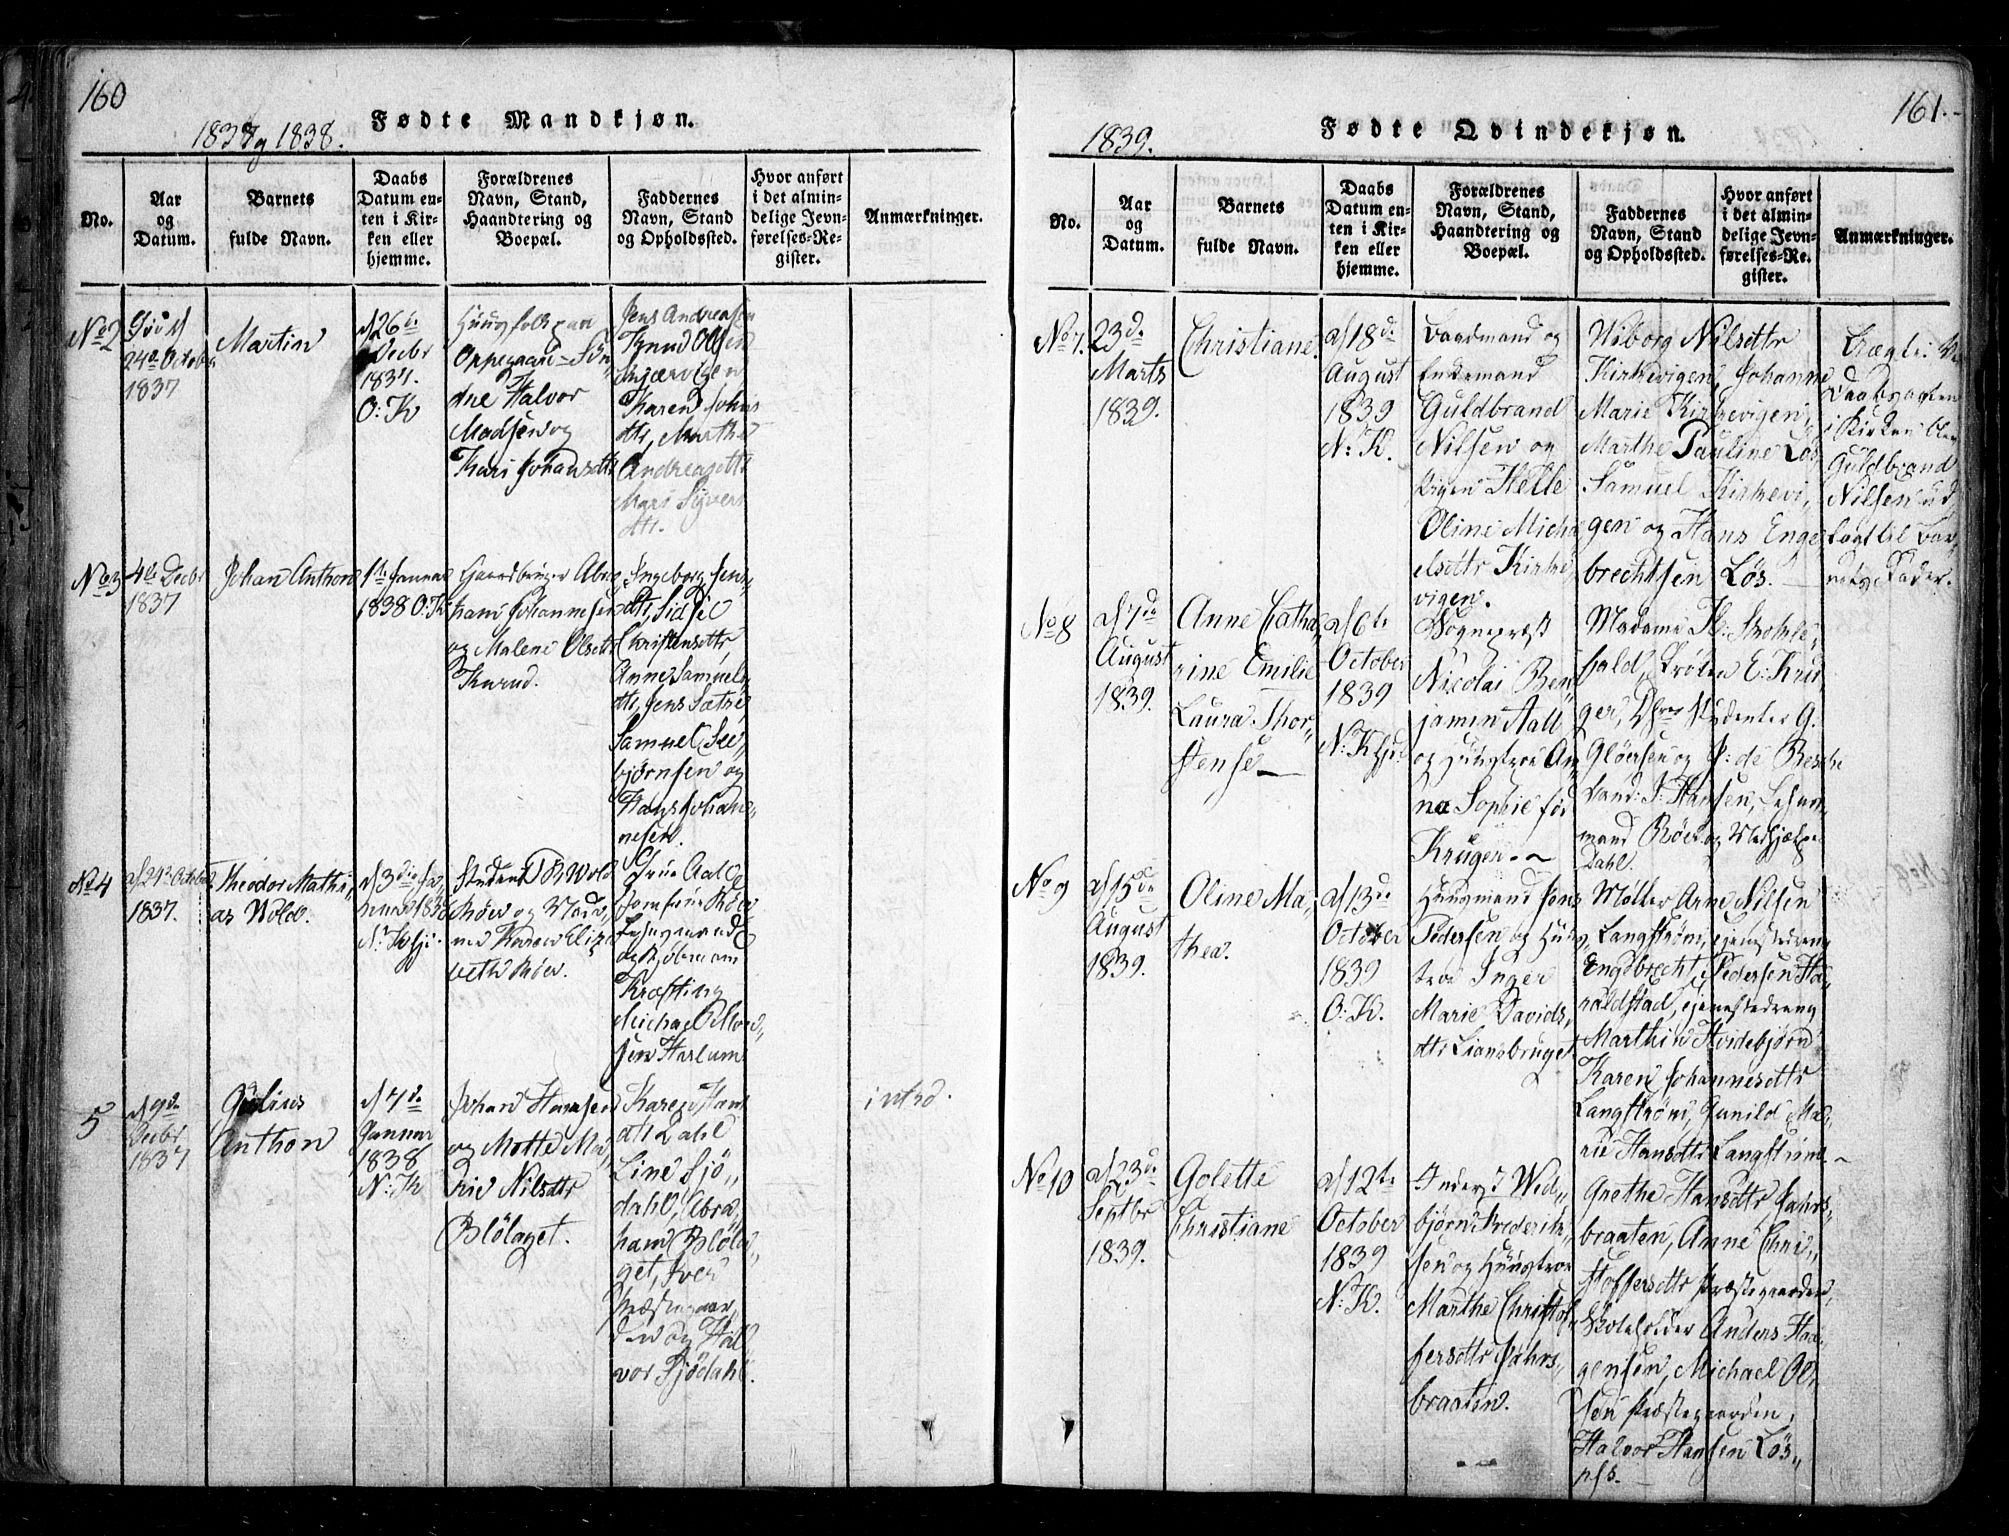 160
Fødte Mandkjøn.
1837 og 1838.
No.
Aar
og
Datum.
Barnets
fulde Navn.
Daabs
Datum en-
ten i Kir-
ken eller
hjemme.
Forældrenes
Navn, Stand,
Haandtering og
Boepæl.
Faddernes
Navn, Stand
og Opholdssted.
Hvor anført
i det almin-
delige Jevn-
førelses-Re-
gister.
Anmærkninger.
No 2
24de October
1837
Martin
d 26de
Decbr
1837.
O: K
Huusfolk paa
Oppegaard Søn-
dre Halvor
Madsen og
Kari Johansdtr
Jens Andreasen
Knud Olsen
Skjærvigen
Karen Johns
dtr, Marthe
Andreasdtr
Mari Syvers
dtr.
No 3
4de Decbr
1837
Johan Anthon
1ste Januar
1838 O: K
Gaardbruger Abra
ham Johannesen
og Malene Olsdtr
Kurud.
Ingeborg Jens
dtr, Sidsel
Christensdtr
Anne Samuels
dtr, Jens Sætre,
Samuel See,,
bjørnsen og
Hans Johan,,
nesen.
No 4
d 24de October
1837.
Theodor Mathi,,
as Wold.
d 3die Ja,,
nuar 1838
N: K
Student Wold
Røer og Mada,,
me Karen Eliza
beth Røer.
Frue Aall
Jomfrue Røer
Lehnsmand
Kræfting
Michael
sen Harlum
5
d 9de
Decbr
1837
Julius
Anthon
d 7de
Januar
1838
N: K
Johan Hansen
og Mette Ma,,
rie Nilsdtr
Blølaget.
Karen Hans
dtr Dahl
Line Sjø,,
dahl, Abra,,
ham Bløla,,
get, Iver
Præstegaar,,
den og Hal,,
vor Sjødahl.
intrd.
161.
Fødte Qvindekjøn.
1839.
No.
Aar
og
Datum.
Barnets
fulde Navn.
Daabs
Datum en-
ten i Kir-
ken eller
hjemme.
Forældrenes
Navn, Stand,
Haandtering og
Boepæl.
Faddernes
Navn, Stand
og Opholdssted.
Hvor anført
i det almin-
delige Jevn-
førelses-Re-
gister.
Anmærkninger.
No 7.
23de
Marts
1839.
Christiane.
d 18de
August
1839
N: K.
Baadmand og
Enkemand
Guldbrand
Nilsen og
Pigen Helle
Oline Micha
elsdtr Kirke
vigen.
Wiborg Nilsdtr
Kirkevigen, Johanne
Marie Kirkevigen,
Marthe Pauline Løs,
Samuel Kirkevi,,
gen og Hans Enge,,
brechtsen Løs.
Uægte: Ved
Daabsagten
i Kirken blev
Guldbrand
Nilsen ud
lagt til Bar,,
nets Fader.
No 8
d 7de
August
1839.
Anne Catha,,
rine Emilie
Laura Thor,,
stense
d 6te
October
1839
N: K
Sognepræst
Nicolai Ben,,
jamin Aall
og Huustroe An,,
na Sophie før
Krüger.
Madame
fald, Frøken E: Krü
ger, Dhrr Studenter G.
Gløersen og P: de Besche
Cand: J: Hansen, Lehns,,
mand Røer og Medhjelper
Dahl.
No 9
d 15de
August
1839.
Oline Ma,,
thea.
d 13de
October
1839
O: K.
Huusmand Jens
Pedersen og Huus,,
troe Inger
Marie Davids,,
dtr Liansbruget.
Møller Arne Nilsen
Langstrøm, tjenestedreng
Engebrecht Pedersen Ha,,
raldstad, tjenestedreng
Marthin Hvidebjørn
Karen Johannesdtr
Langstrøm, Gunild Ma,,
rie Hansdtr Langstrøm
No 10
d 23de
Septbr
1839.
Golette
Christiane
d 12te
October
1839
N: K.
Inderst Wed,,
bjørn Frederik,,
sen og Huustroe
Marthe Christof,,
fersdtr Fahrs,,
braaten.
Grethe Hansdtr Fahrs,,
braaten, Anne Chri,,
stoffersdtr Præstegaarden,
Skoleholder Anders Haa,,
gensen, Michael Ol,,
sen Præstegaarden,
Halvor Hansen Løs,,